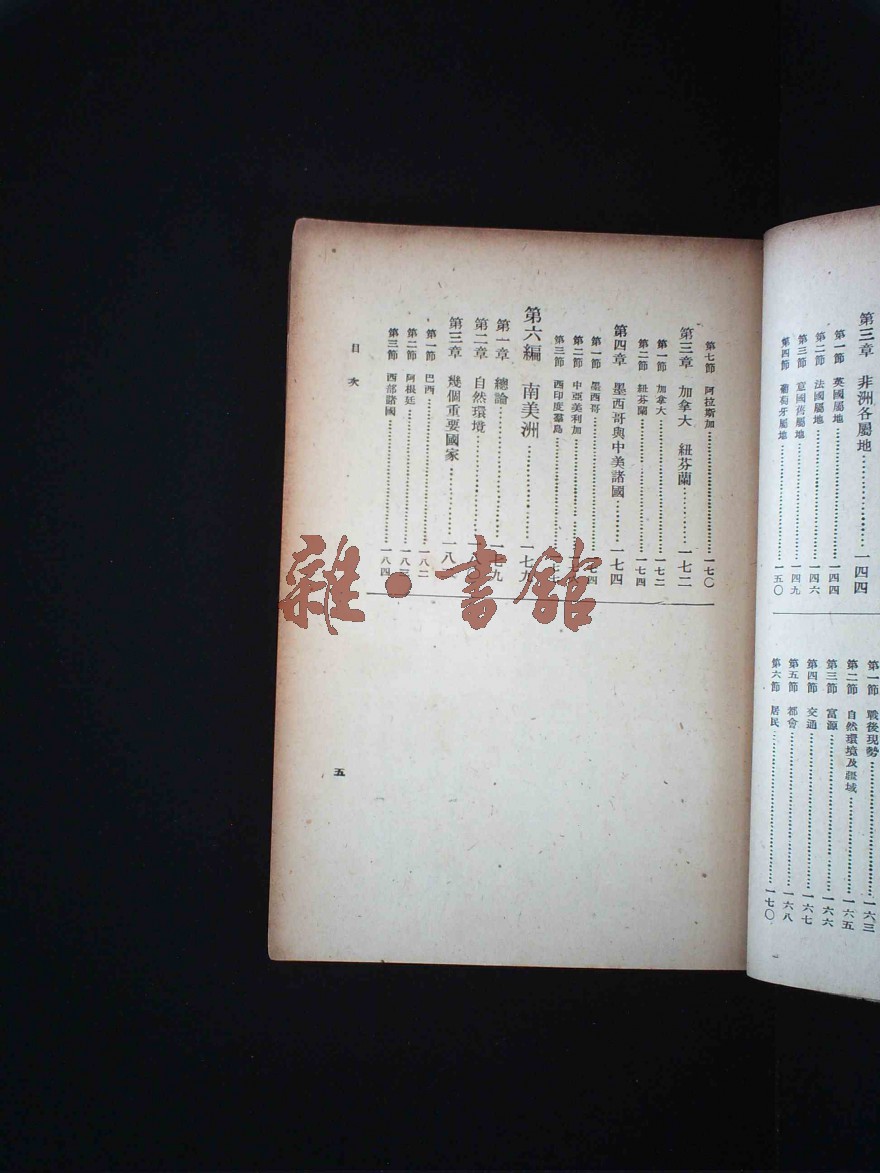 第三章　非洲各屬地……一四四
第一節　英國屬地……一四四
第二節　法國屬地……一四六
第三節　意國舊屬地……一四九
第四節　葡萄牙屬地……一五〇
第一節　戰後現勢……一六三
第二節　自然環境及疆域……一六五
第三節　富源……一六六
第四節　交通……一六七
第五節　都會……一六八
第六節　居民……一七〇
第七節　阿拉斯加……一七〇
第三章　加拿大　紐芬蘭……一七二
第一節　加拿大……一七二
第二節　紐芬蘭……一七四
第四章　墨西哥與中美諸國……一七四
第一節　墨西哥……一七四
第二節　中亞美利加……
第三節　西印度羣島……
第六編　南美洲……一七九
第一章　總論……一七九
第二章　自然環境……一八〇
第三章　幾個重要國家……一八
第一節　巴西……一八二
第二節　阿根廷……一八三
第三節　西部諸國……一八四
目次
五
雜·書館